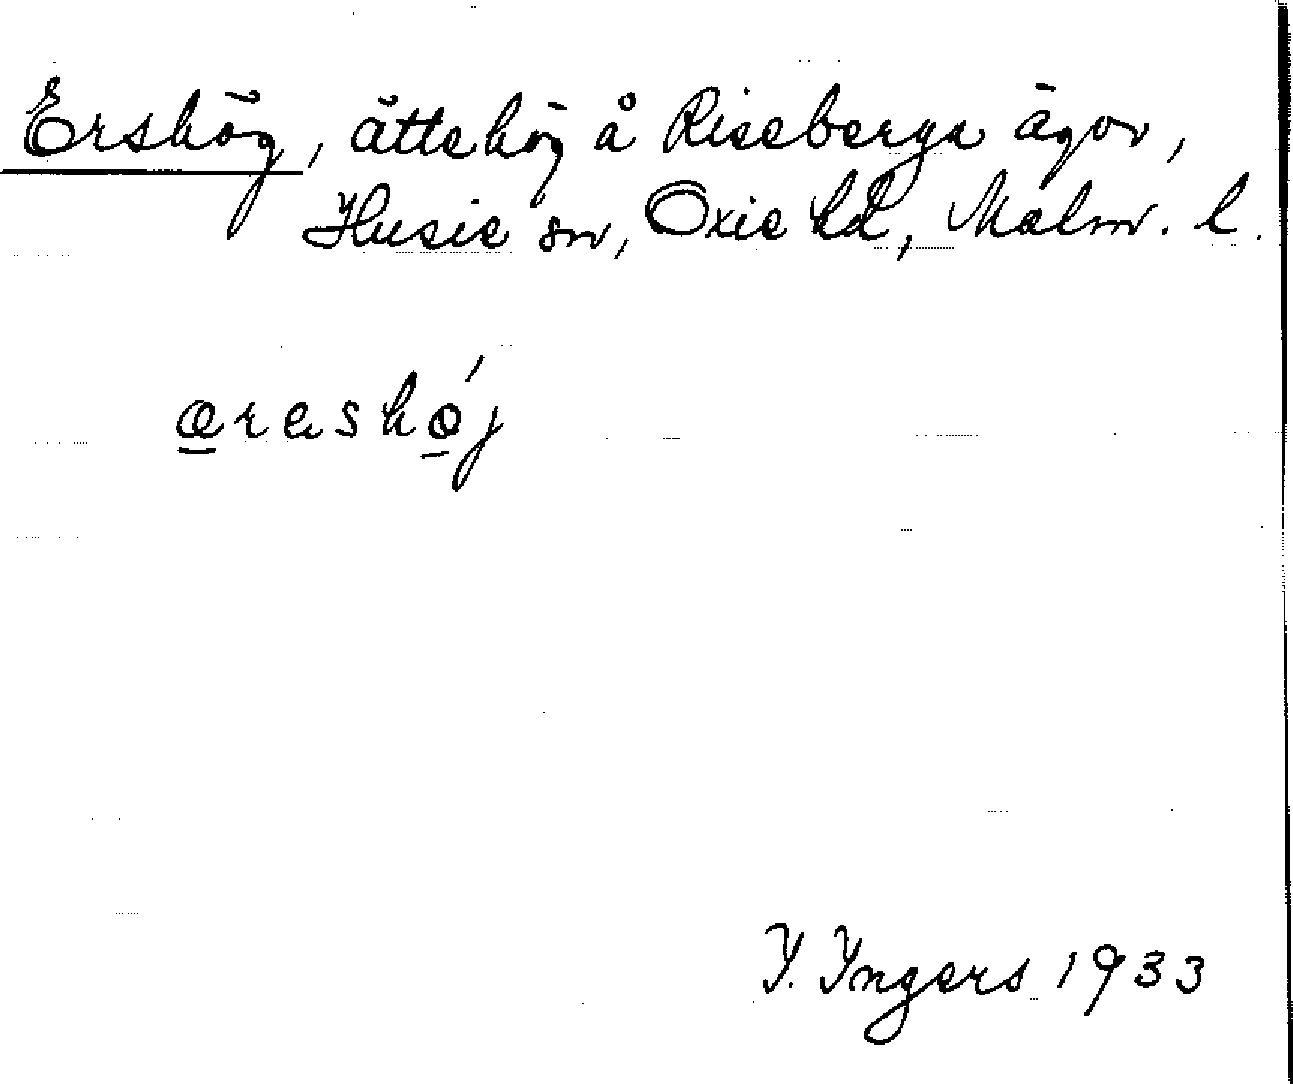 Ershög, ättehög å Riseberga ägor,
Husie sn, Oxie hd, Malm. l.
ærashǿj
I. Ingers 1933